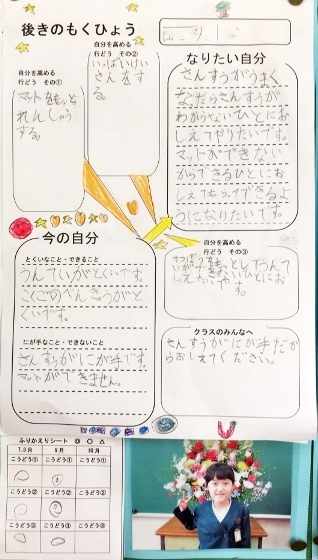 後きのもくひょう
自分を高める
行どう その①
マットをもっと
れんしゅう
する。
自分を高める
行どう その②
いっぱいけい
さんをす
る。
なりたい自分
さんすうがうまく
なったらさんすうが
わからないひとにお
しえてやりたいです。
マットができない
からできるひとにお
しえてもらってできるよ
うになりたいです。
今の自分
とくいなこと・できること
うんていがとくいです。
こくごのべんきょうがと
くいです。
にが手なこと・できないこと
さんすうがにが手です。
マットができません。
自分を高める
行どう その③
クラスのみんなへ
さんすうがにが手だか
らおしえてください。
ふりかえりシート ◎ ○ △
7,8月 9月 10月
こうどう① こうどう① こうどう①
こうどう② こうどう② こうどう②
こうどう③ こうどう③ こうどう③